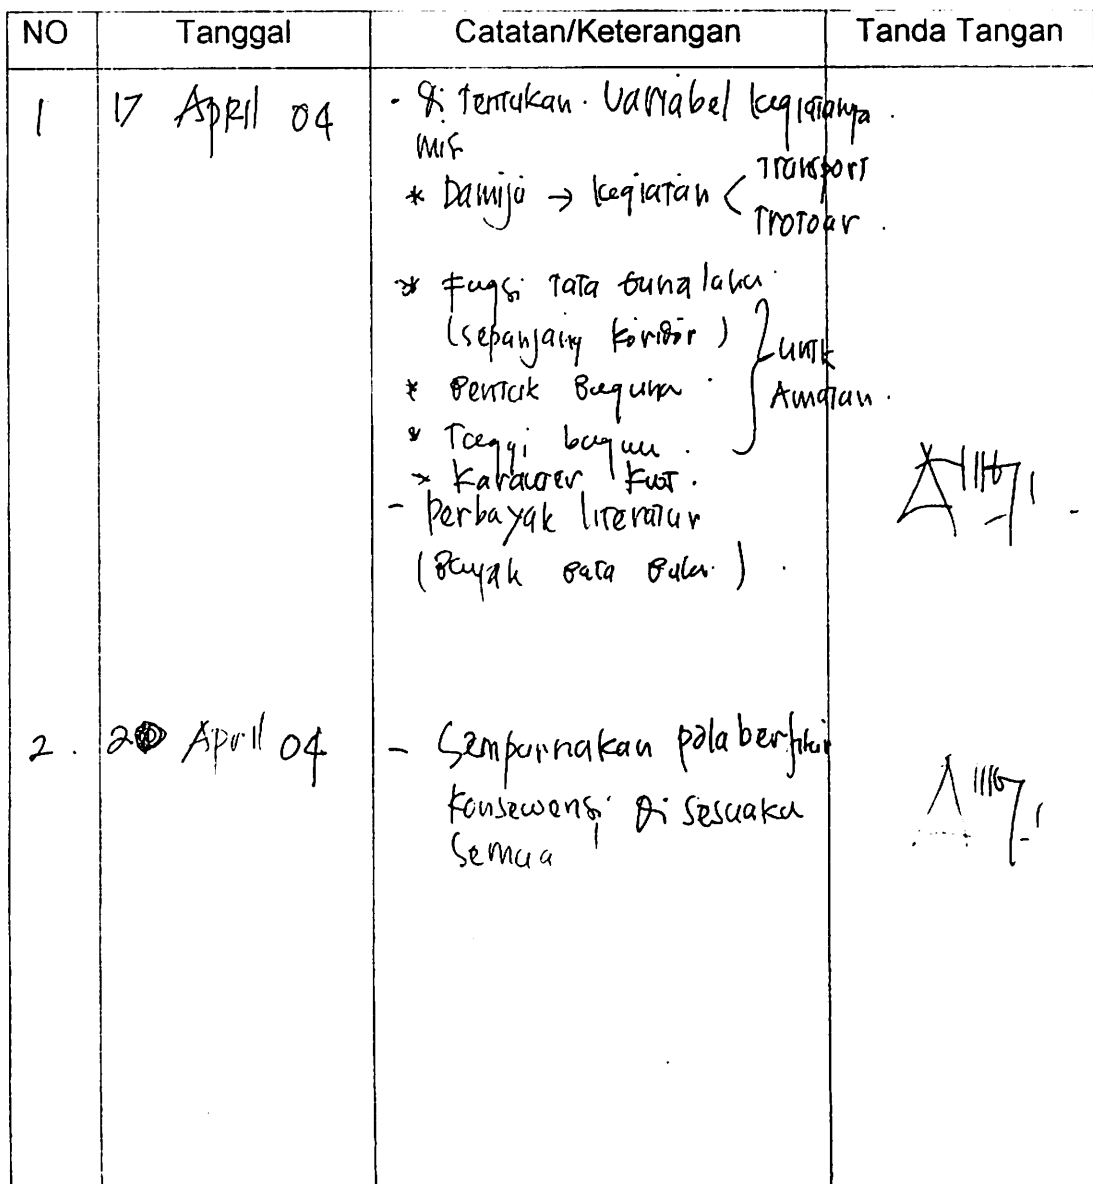 NO Tanggal Catatan/Keterangan Tanda Tangan
1 17 April 04 - Di Tentukan Variabel kegiatanya
mis
* Damija → kegiatan < Transport
Trotoar.
* Fugsi Tata Guna laha
(sepanjang koridor)
* Bentuk Baguna
* Tinggi bagun.
} untk
Amatan.
* Karakter
- Perbayak literatur
(Bayak Baca Buku.)
2. 20 April 04 - Sempurnakan pola berfikir
Konsewensi Di Sesuaka
Semua